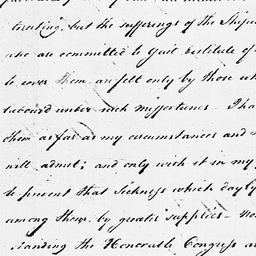 treating, but the sufferings of the
who are committed to Gaol destitute of
to cover them are felt only by those who
labour'd under such misfortunes - I ha
them as far as my circumstances and
will admit; and only wish it in my
to prevent that Sickness which dayly
among them by greater supplies -
standing the Honorable Congress a